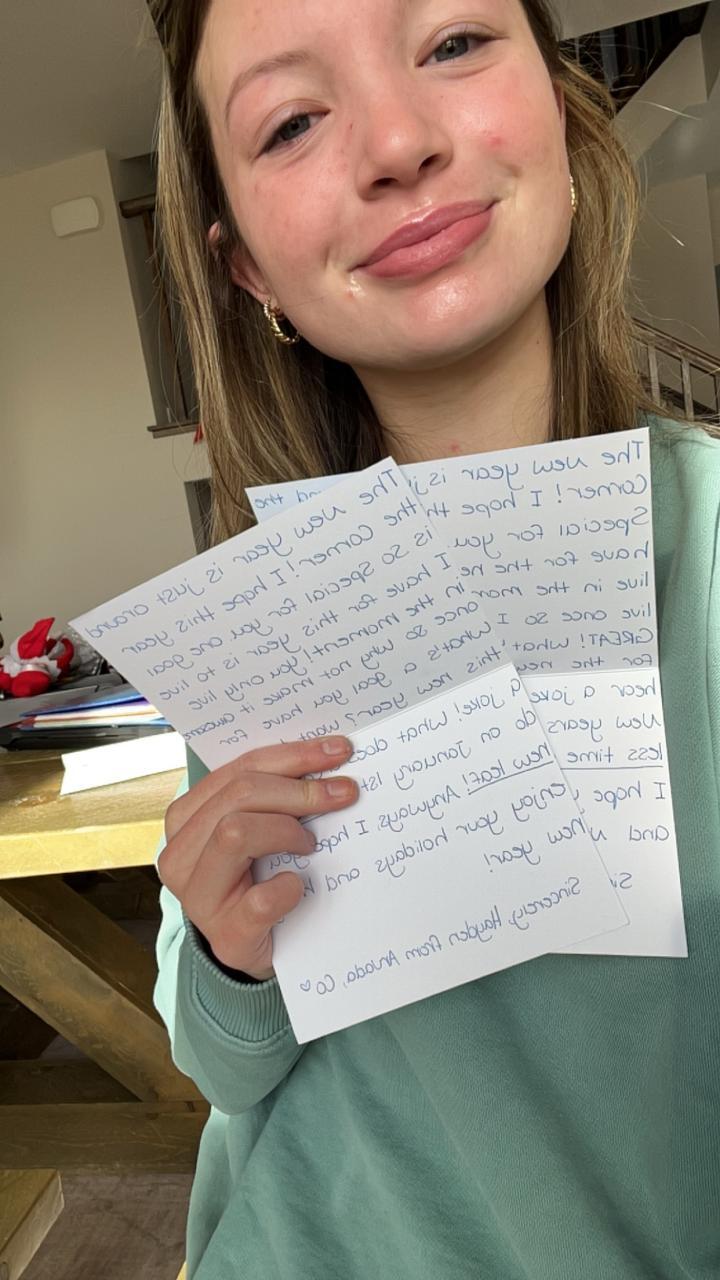 The new year is just around
the corner! I hope this year
is so special for you are goal
I have for this year is to live
in the moment! You only live
once so why not make it
What's a goal you have for
this new year? Want
a joke! What does
do on January 1st
New leaf! Anyways, I hope you
enjoy your holidays and
new year!
Sincerely, Hayden from Arvada, CO ♡
The new year is the
Corner! I hope
Special for you
have for the
live in the
live once so I
GREAT! What
for the new
hear a joke
New years
less time
I hope
and